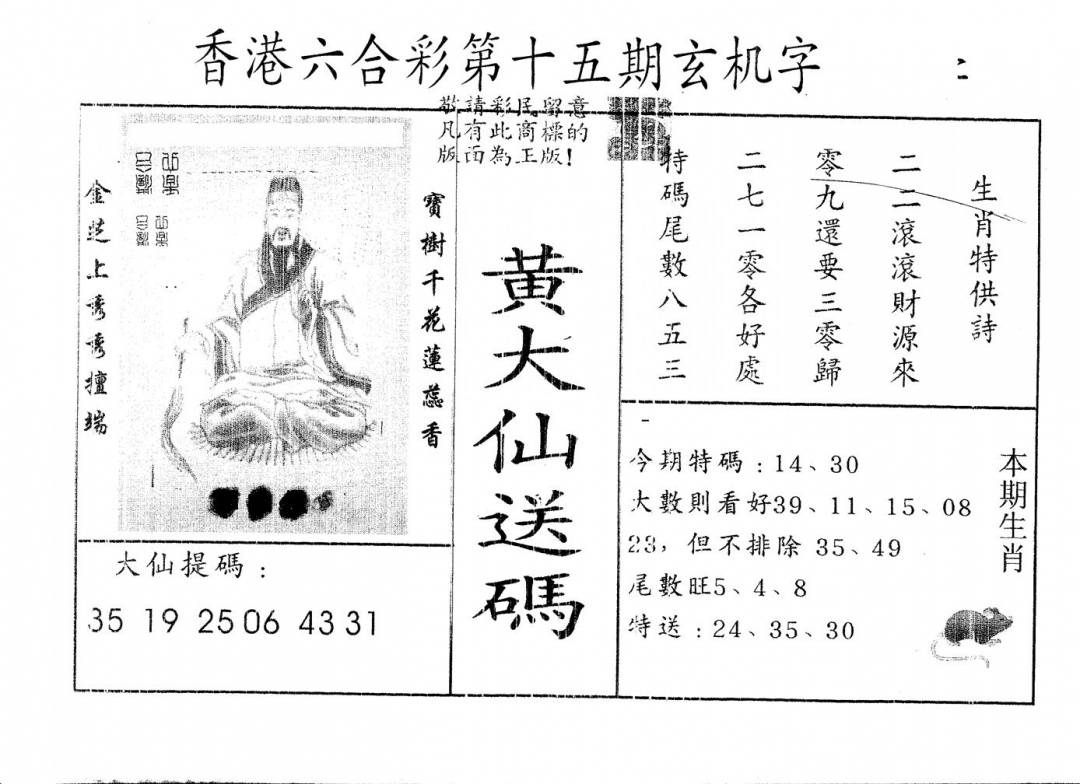 香港六合彩第十五期玄机字
敬請彩民留意
凡有此商標的
版面為正版!
金
上
端
寶樹千花蓮蕊香
大仙提碼：
35 19 25 06 43 31
黃大仙送碼
生肖特供詩
二二滾滾財源來
零九還要三零歸
二七一零各好處
特碼尾數八五三
今期特碼：14、30
大數則看好39、11、15、08
23，但不排除 35、49
尾數旺5、4、8
特送：24、35、30
本期生肖